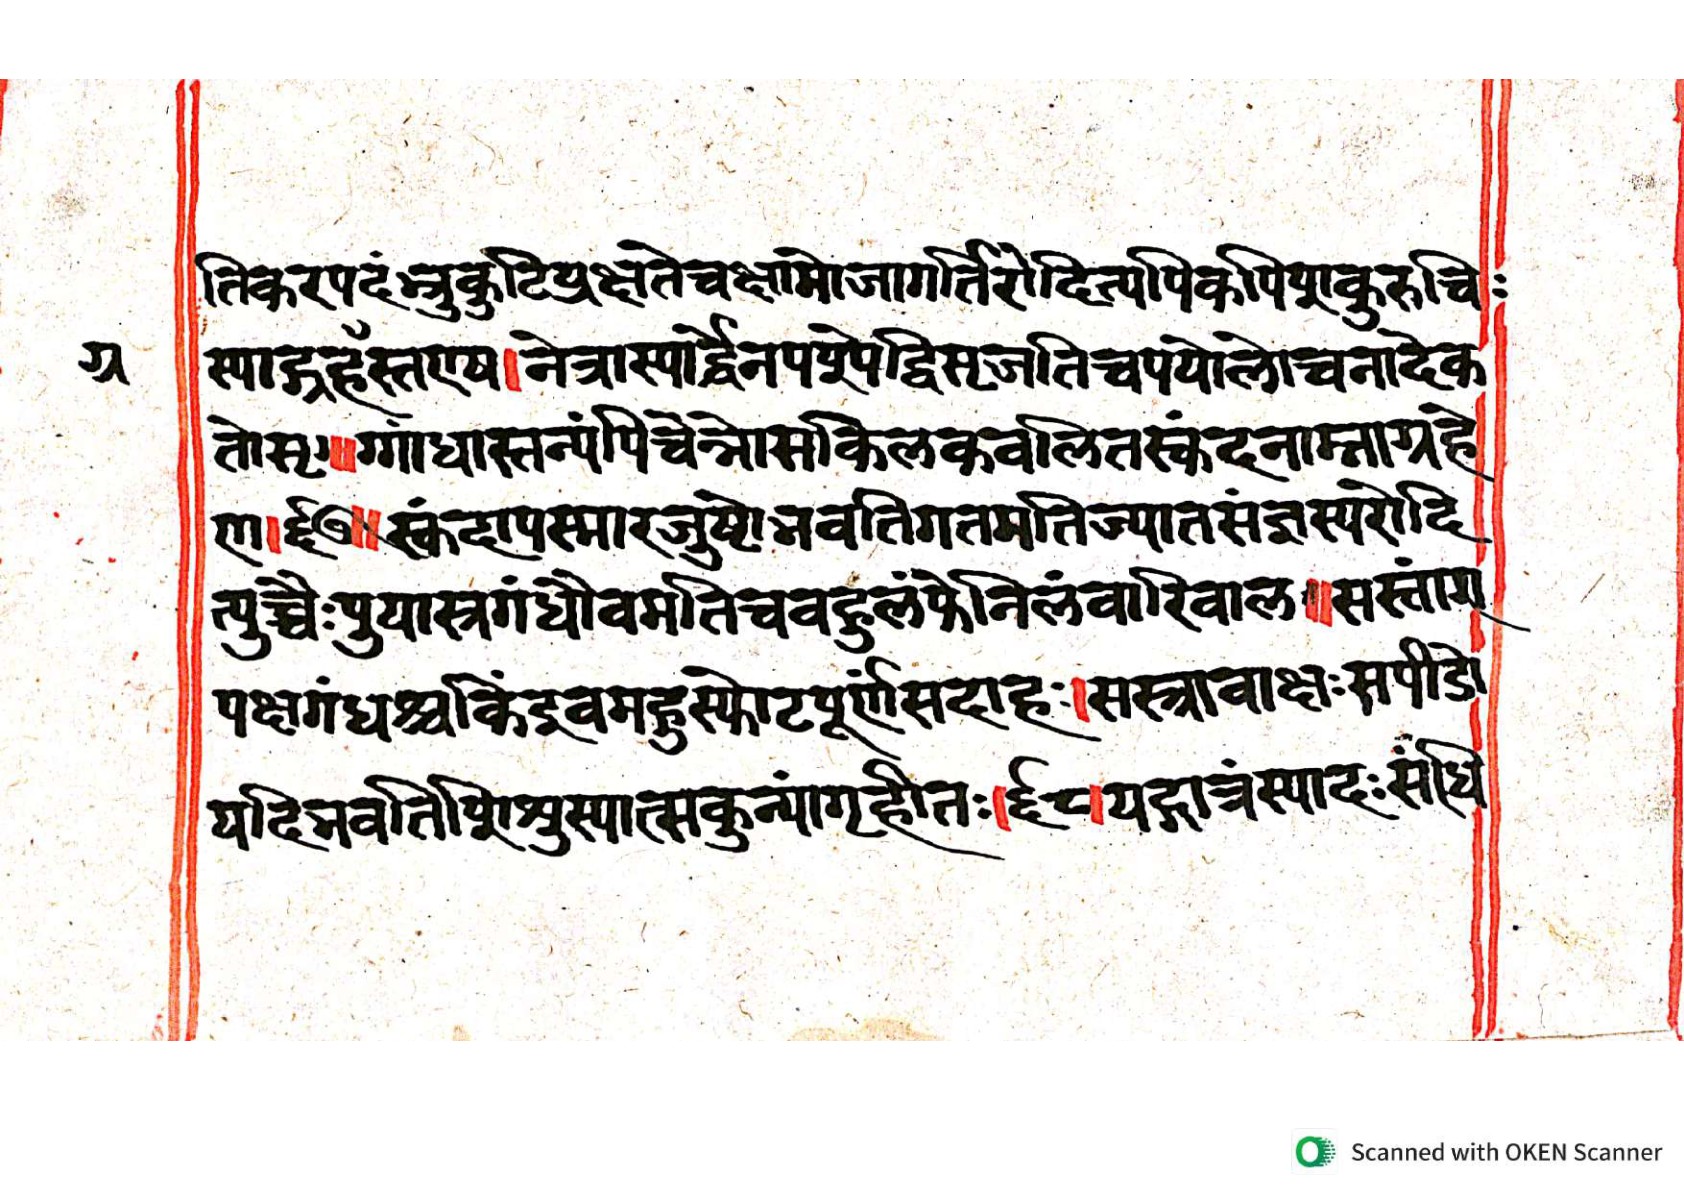 तिकरपदंभ्रुकुटिप्रक्षतेचक्षामोजागर्तिरोदित्यपिकपिपाकुरुचिः
ग्र
स्याद्ग्रहँस्तएष।नेत्रास्यार्द्धेनपश्येद्विसृजतिचपयोलोचनादेक
तोसृग्॥ग्गांधास्तन्यंपिवेन्नोसकिलकवलितस्कंदनाम्नाग्रहे
ण।६७॥स्कंदापस्मारजुष्टोभवतिगतमतिज्यातसंज्ञस्यरोदि
त्युच्चैःपुयास्त्रगंधौवमतिचवहुलंफेनिलंवारिवाल॥सस्तांग
पक्षगंधश्चकिंदवमहुस्फोटपूर्णसदाहः।सस्त्रावाक्षःसपीडो
यदिभवतिशिशुस्यात्सकुन्यागृहीतः।६८।यद्गात्रंस्यादःसंधि
Scanned with OKEN Scanner